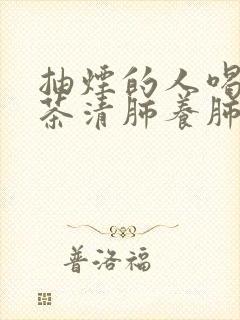 抽煙的人喝
茶清肺養肺
普洛福